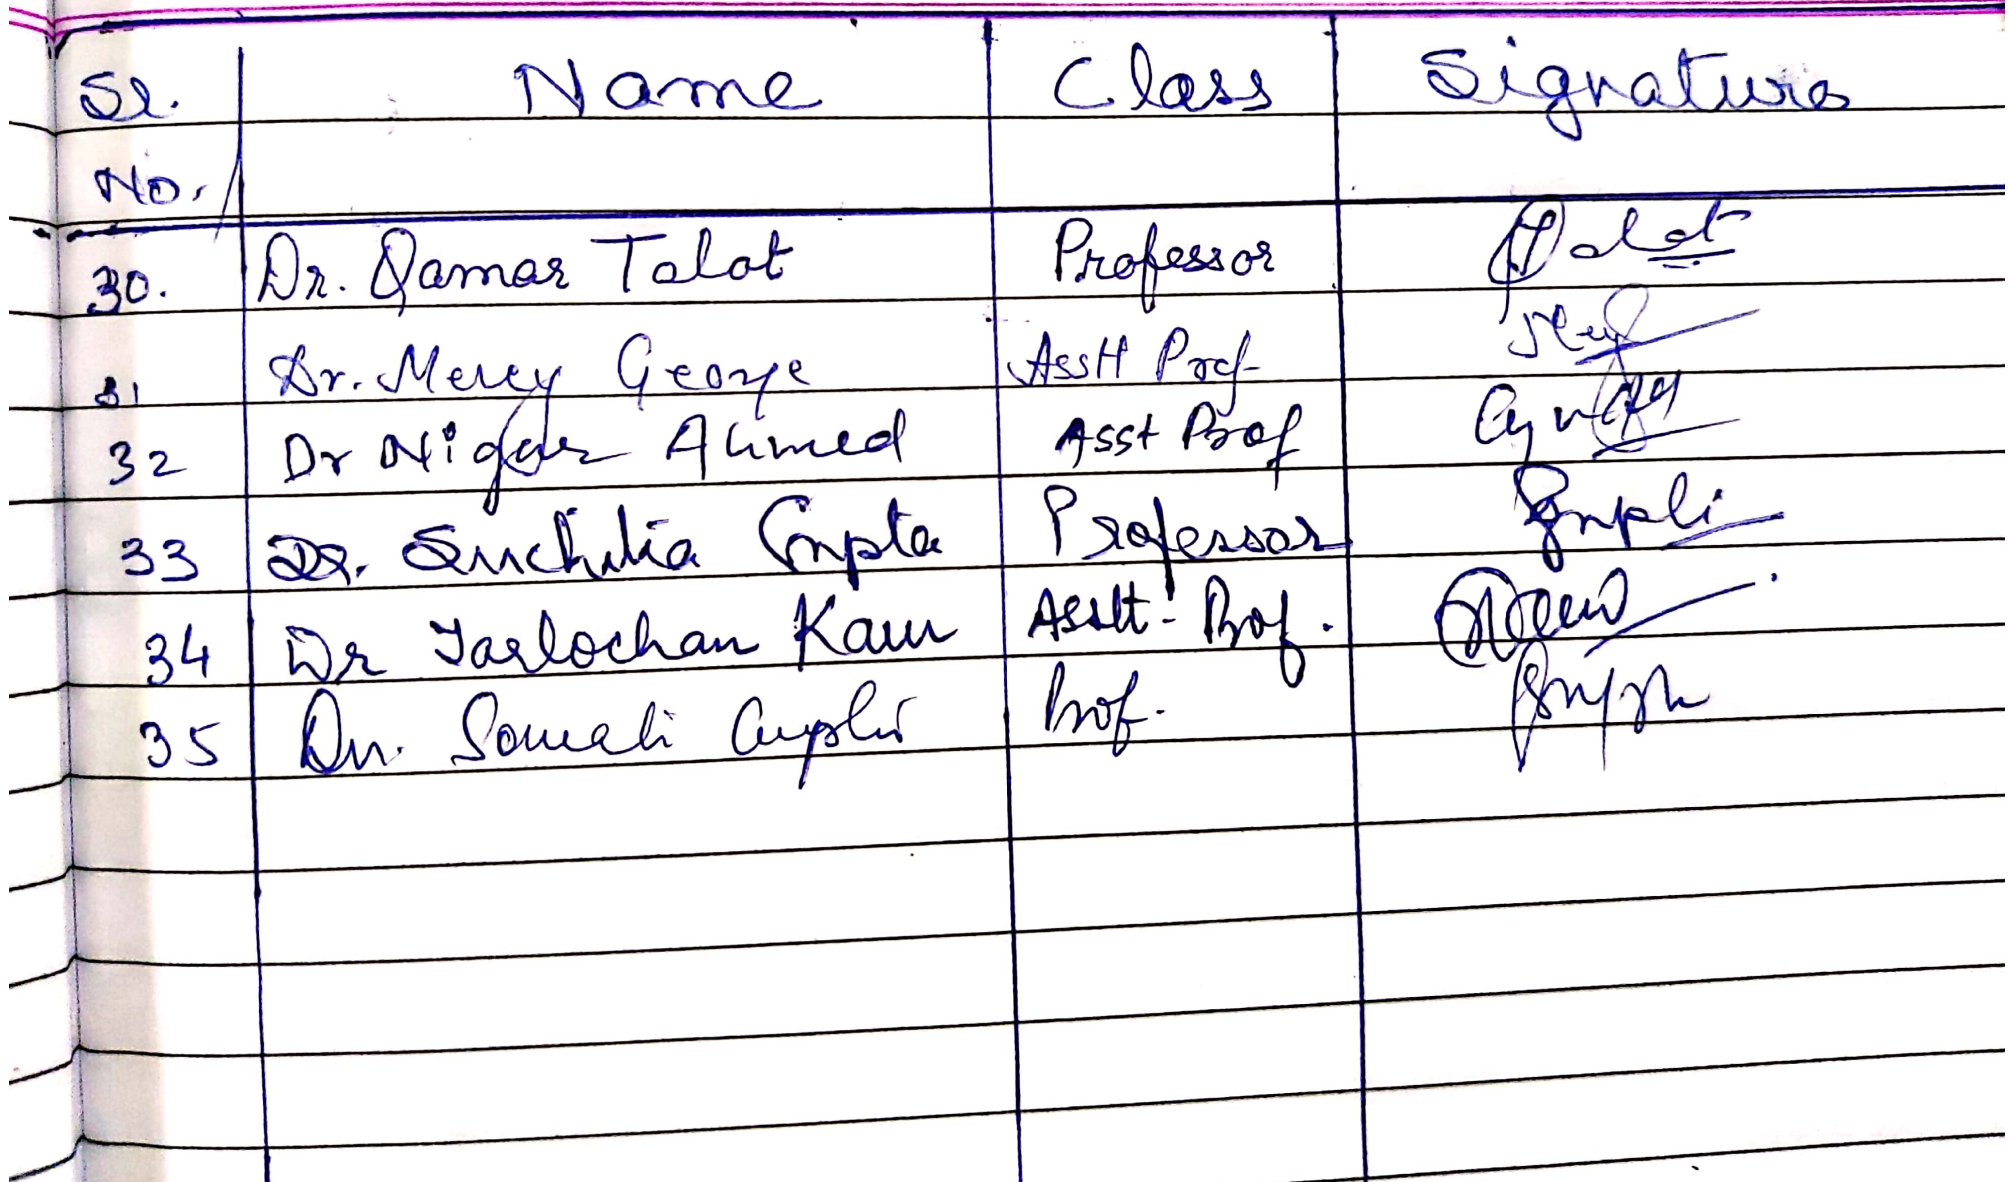 Sl. Name Class Signature
No.
30. Dr. Qamar Talat Professor Talat
31 Dr. Mercy George Asstt Prof
32 Dr Nigar Ahmed Asst Prof
33 Dr. Suchitra Gupta Professor
34 Dr Tarlochan Kaur Asstt. Prof.
35 Dr. Somali Gupta Prof.